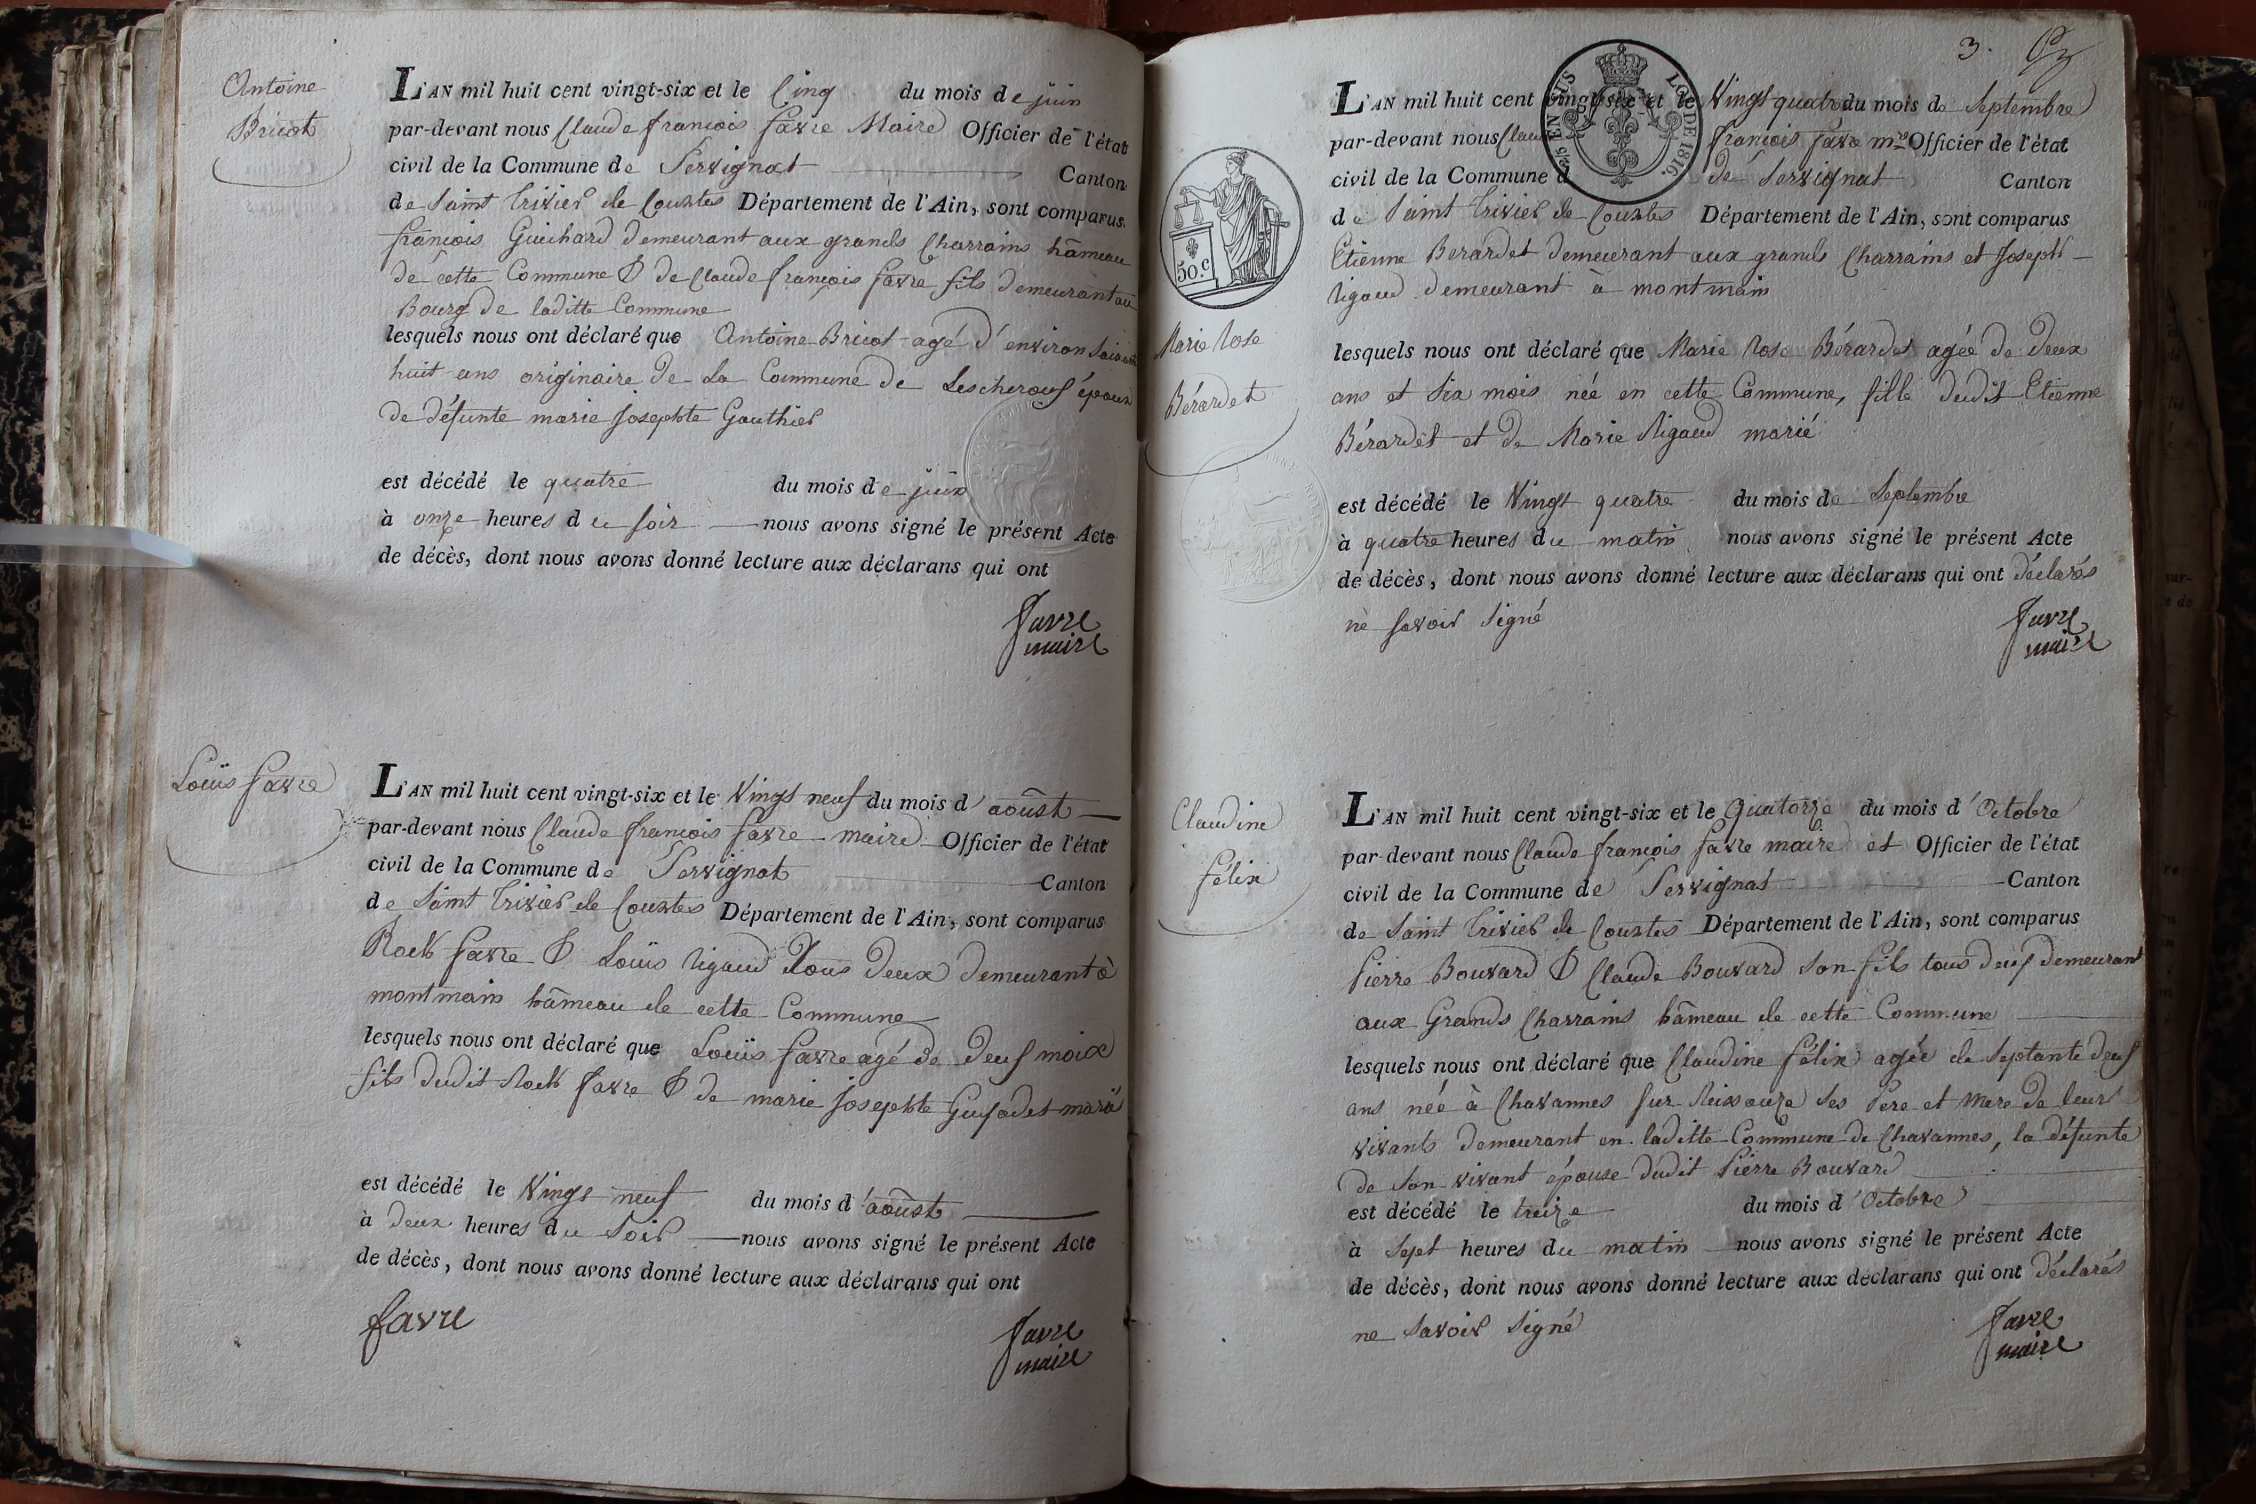 Antoine
Bricot
L'AN mil huit cent vingt-six et le Cinq du mois de juin
par-devant nous Claude françois favre Maire Officier de l'état
civil de la Commune de Servignat Canton
de Saint Trivier de Courtes Département de l'Ain, sont comparus
françois Guichard demeurant aux grands Charrains hâmeau
de cette Commune & de Claude françois favre fils demeurant au
Bourg de laditte Commune
lesquels nous ont déclaré que Antoine Bricot agé d'environ soixante
huit ans originaire de La Commune de Lescheroux époux
de défunte marie josephte Gauthier
est décédé le quatre du mois de juin
à onze heures du soir nous avons signé le présent Acte
de décès, dont nous avons donné lecture aux déclarans qui ont
favre
maire
Louïs favre
L'AN mil huit cent vingt-six et le Vingt neuf du mois d'aoûst
par-devant nous Claude françois favre maire Officier de l'état
civil de la Commune de Servignat Canton
de Saint Trivier de Courtes Département de l'Ain, sont comparus
Roch favre & Louïs rigaud tous deux demeurant à
montmain hâmeau de cette Commune
lesquels nous ont déclaré que Louïs favre agé de deux moix
fils dudit Roch favre & de marie josephte marié
est décédé le Vingt neuf du mois d'aoûst
à deux heures du Soir nous avons signé le présent Acte
de décès, dont nous avons donné lecture aux déclarans qui ont
favre
favre
maire
3.
EN SUS
LOI DE 1816.
50.c
Marie Rose
Bérardet
L'AN mil huit cent vingt-six et le Vingt quatre du mois de Septembre
par-devant nous Claude françois favre mre Officier de l'état
civil de la Commune de Servignat Canton
de Saint Trivier de Courtes Département de l'Ain, sont comparus
Etienne Berardet demeurant aux grands Charrains et Joseph
rigaud demeurant à montmain
lesquels nous ont déclaré que Marie Rose Bérardet agée de deux
ans et Six mois née en cette Commune, fille dudit Etienne
Bérardet et de Marie Rigaud marié
est décédé le Vingt quatre du mois de Septembre
à quatre heures du matin nous avons signé le présent Acte
de décès, dont nous avons donné lecture aux déclarans qui ont déclarés
ne savoir signé
favre
maire
Claudine
félix
L'AN mil huit cent vingt-six et le Quatorze du mois d'Octobre
par-devant nous Claude françois favre maire et Officier de l'état
civil de la Commune de Servignat Canton
de Saint Trivier de Courtes Département de l'Ain, sont comparus
Pierre Bouvard & Claude Bouvard son fils tous deux demeurant
aux Grands Charrains hâmeau de cette Commune
lesquels nous ont déclaré que Claudine félix agée de Septante deux
ans née à Chavannes sur Reissouze ses Pere et Mere de leur
vivants demeurant en laditte Commune de Chavannes, la défunte
de Son vivant épouse dudit Pierre Bouvard
est décédé le treize du mois d'Octobre
à Sept heures du matin nous avons signé le présent Acte
de décès, dont nous avons donné lecture aux déclarans qui ont déclarés
ne savoir signé
favre
maire